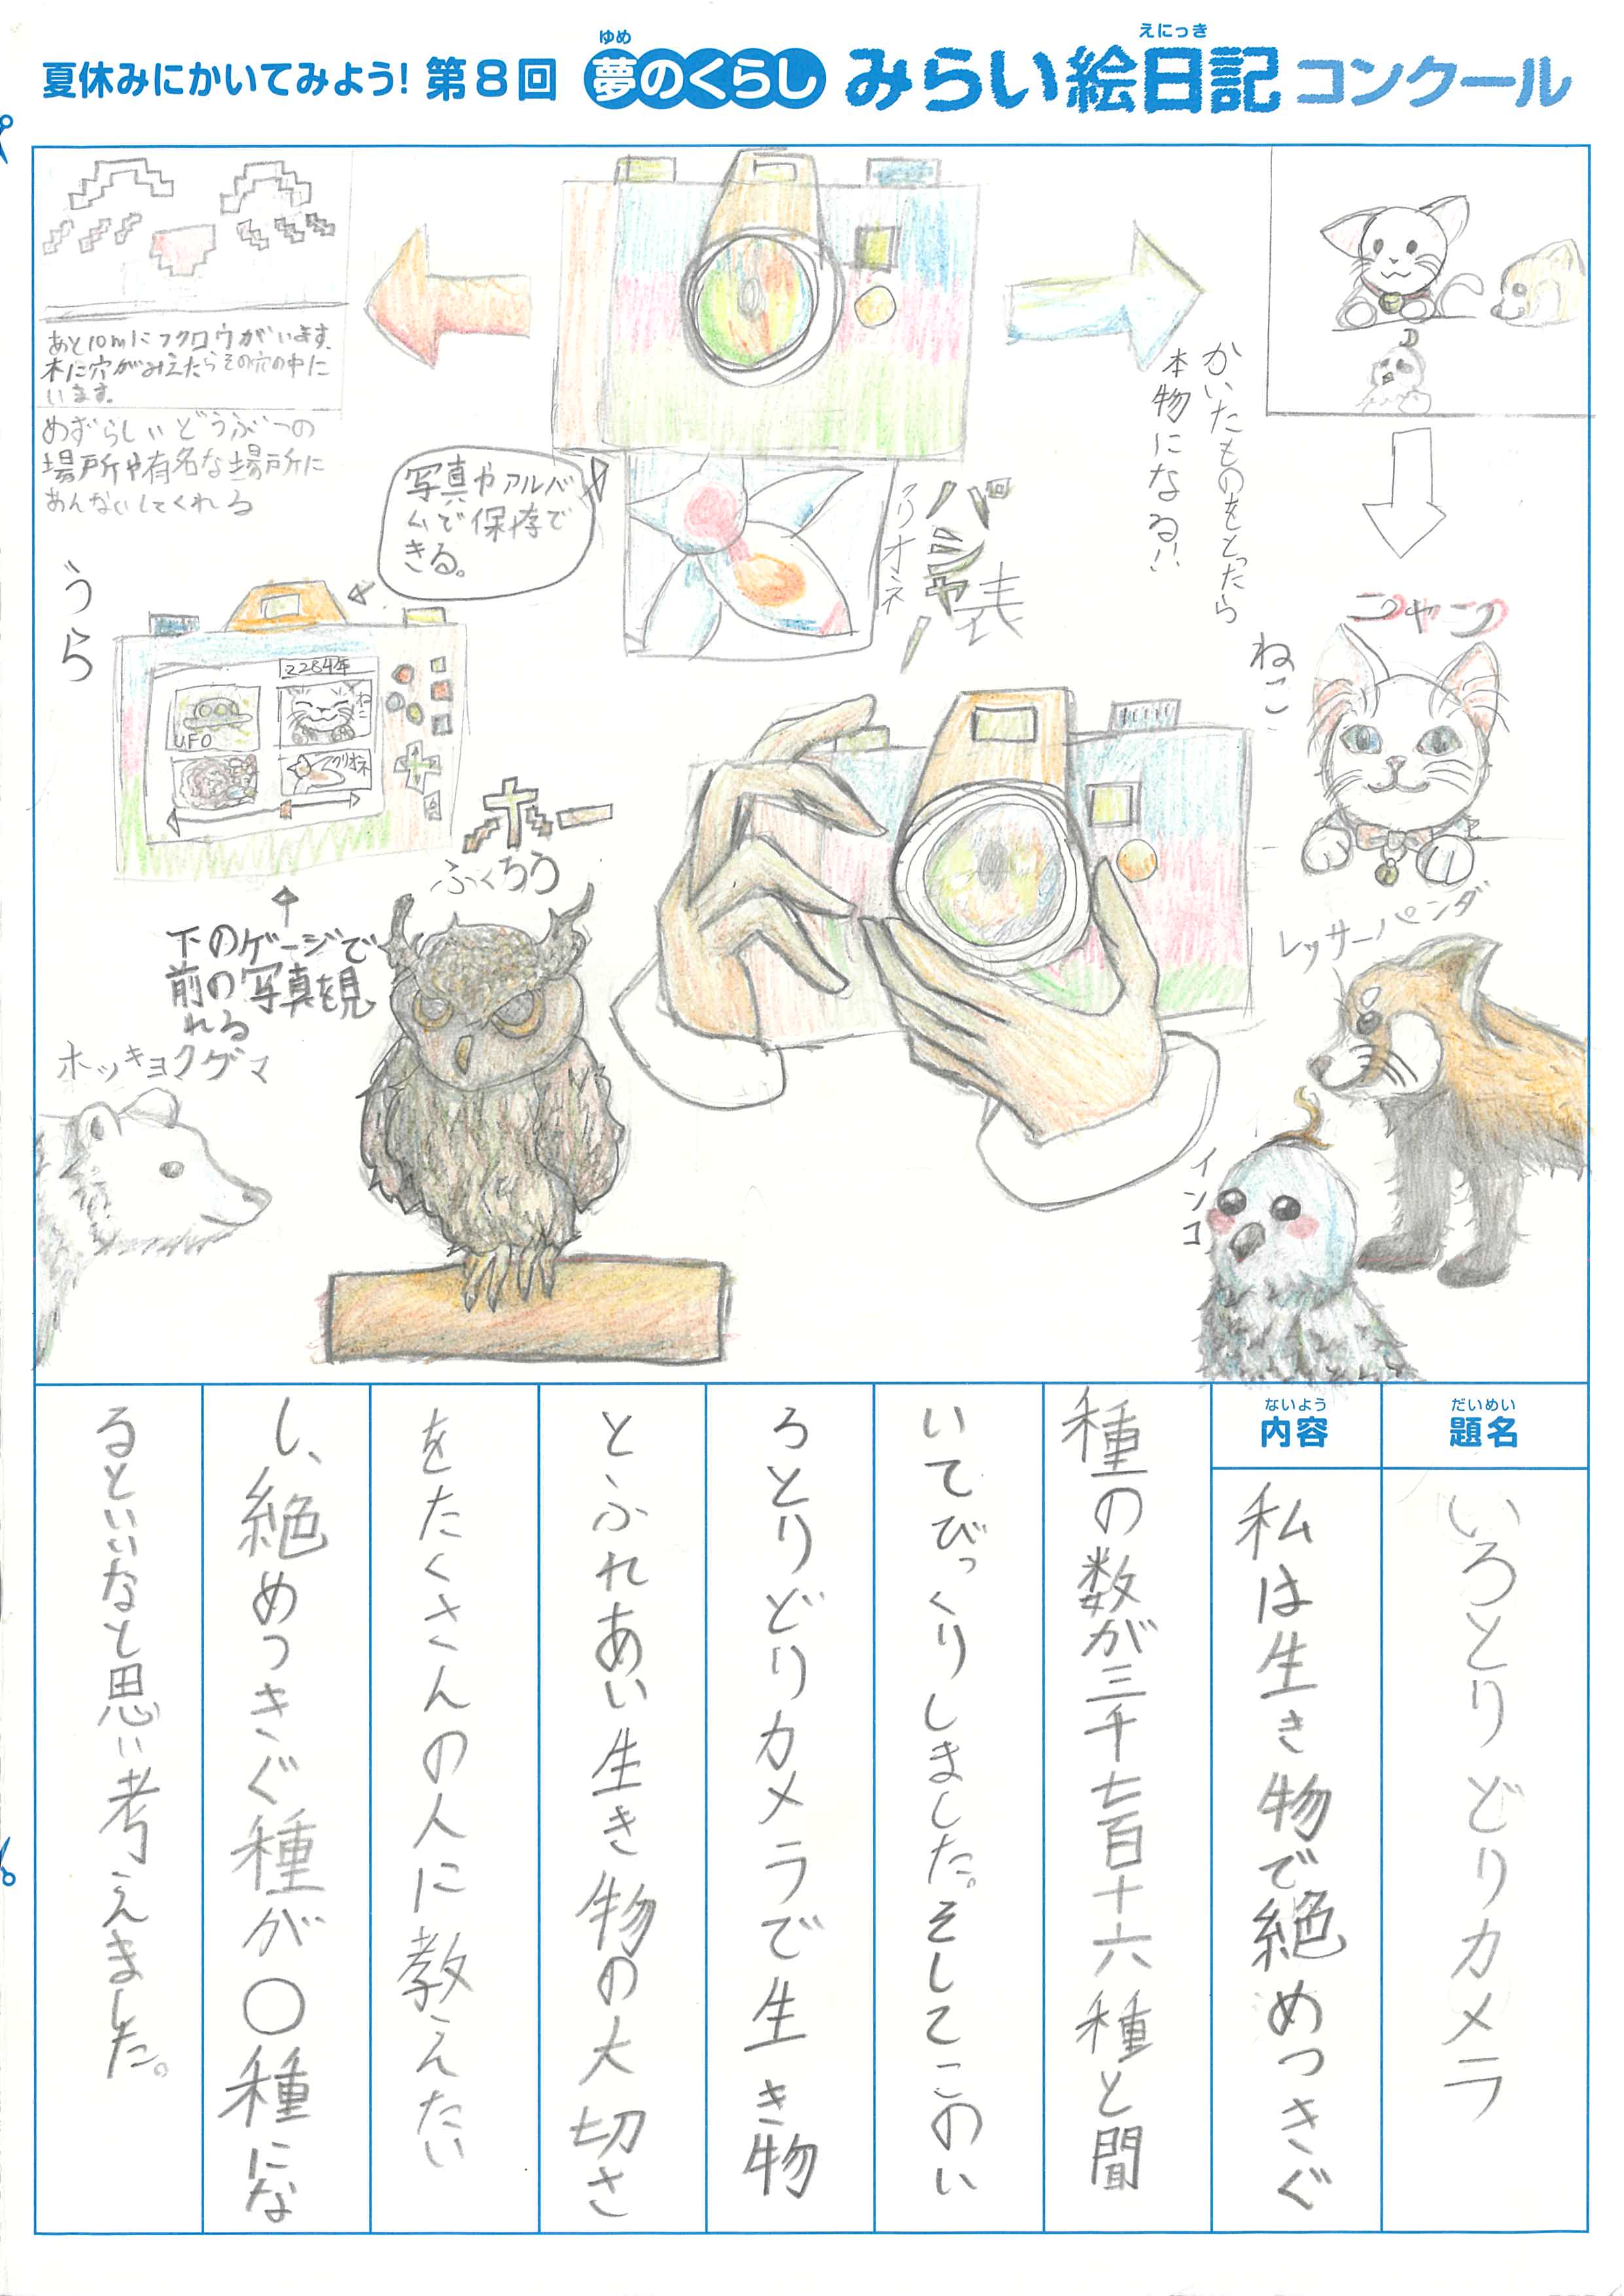 夏休みにかいてみよう! 第8回 夢のくらし みらい絵日記 コンクール
ゆめ
えにっき
あと10mにフクロウがいます。
木に穴がみえたらその穴の中に
います。
めずらしいどうぶつの
場所や有名な場所に
あんないしてくれる
写真やアルバ
ムで保存で
きる。
クリオネ
バシャ
表
かいたものをとったら
本物になる!!
うら
2284年
UFO
ねこ
クリオネ
下のゲージで
前の写真を見
れる
ホッキョクグマ
ホー
ふくろう
ニャーン
ねこ
レッサーパンダ
インコ
だいめい
題名
いろとりどりカメラ
ないよう
内容
私は生き物で絶めつきぐ
種の数が三千七百十六種と聞
いてびっくりしました。そしてこのい
ろとりどりカメラで生き物
とふれあい生き物の大切さ
をたくさんの人に教えたい
し、絶めつきぐ種が〇種にな
るといいなと思い考えました。